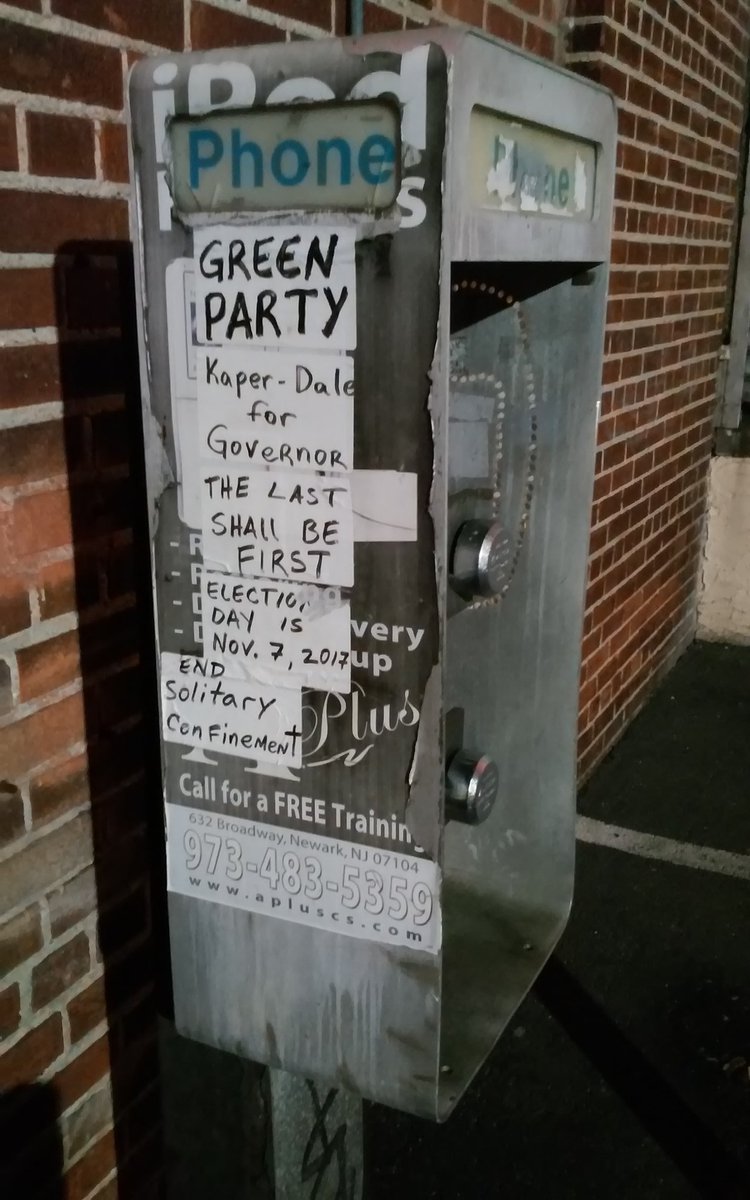 iPod
Phone
Phone
GREEN
PARTY
Kaper-Dale
for
GOVERNOR
THE LAST
SHALL BE
FIRST
ELECTION
DAY is
NOV. 7, 2017
very
up
END
Solitary
CONFINEMENT
Plus
Call for a FREE Training
632 Broadway, Newark, NJ 07104
973-483-5359
www.apluscs.com